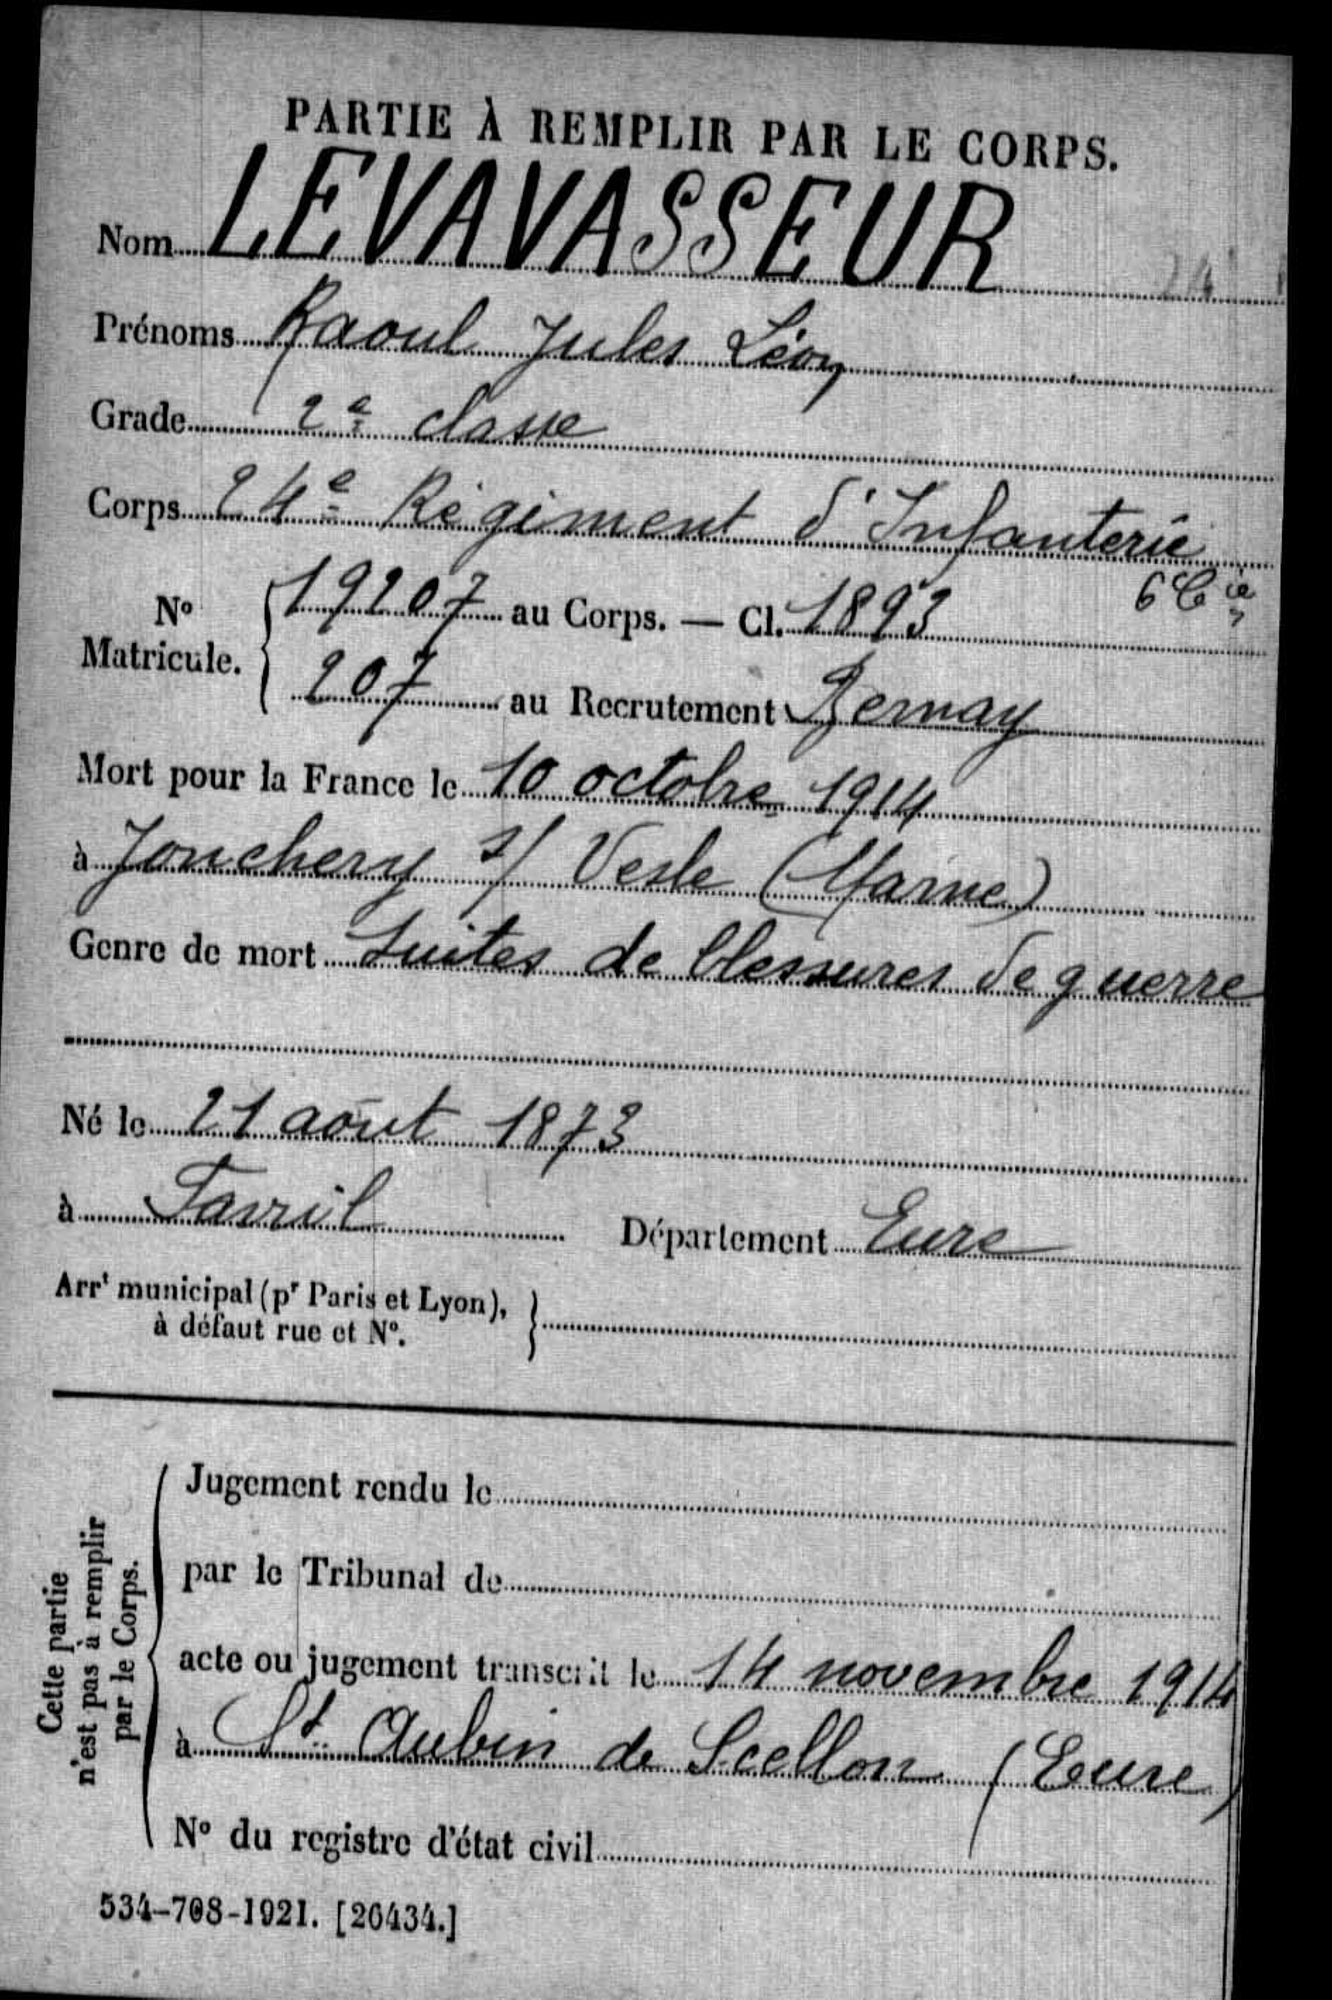 PARTIE À REMPLIR PAR LE CORPS.
Nom LEVAVASSEUR
Prénoms Raoul Jules Léon
Grade 2e classe
Corps 24e Régiment d'Infanterie
6e Cie
No Matricule. { 19207 au Corps. — Cl. 1893
207 au Recrutement Bernay
Mort pour la France le 10 octobre 1914
à Jonchery s/ Vesle (Marne)
Genre de mort Suites de blessures de guerre
Né le 21 août 1873
à Favril Département Eure
Arrt municipal (pr Paris et Lyon), }
à défaut rue et No.
Cette partie
n'est pas à remplir
par le Corps.
Jugement rendu le
par le Tribunal de
acte ou jugement transcrit le 14 novembre 1914
à St. Aubin de Scellon (Eure)
No du registre d'état civil
534-708-1921. [26434.]